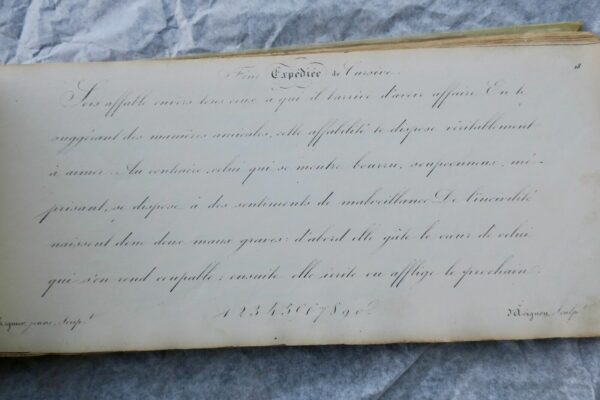 Fine Expédiée de Cursive.
8
Sois affable envers tous ceux à qui il t'arrive d'avoir affaire. En te
suggérant des manières amicales, cette affabilité te dispose véritablement
à aimer. Au contraire, celui qui se montre bourru, soupçonneux, mé-
prisant, se dispose à des sentiments de malveillance. De l'incivilité
naissent donc deux maux graves: d'abord elle gâte le cœur de celui
qui s'en rend coupable; ensuite elle irrite ou afflige le prochain.
jeune Sculp.t
1 2 3 4 5 6 7 8 9 0
d'Avignon Sculp.t